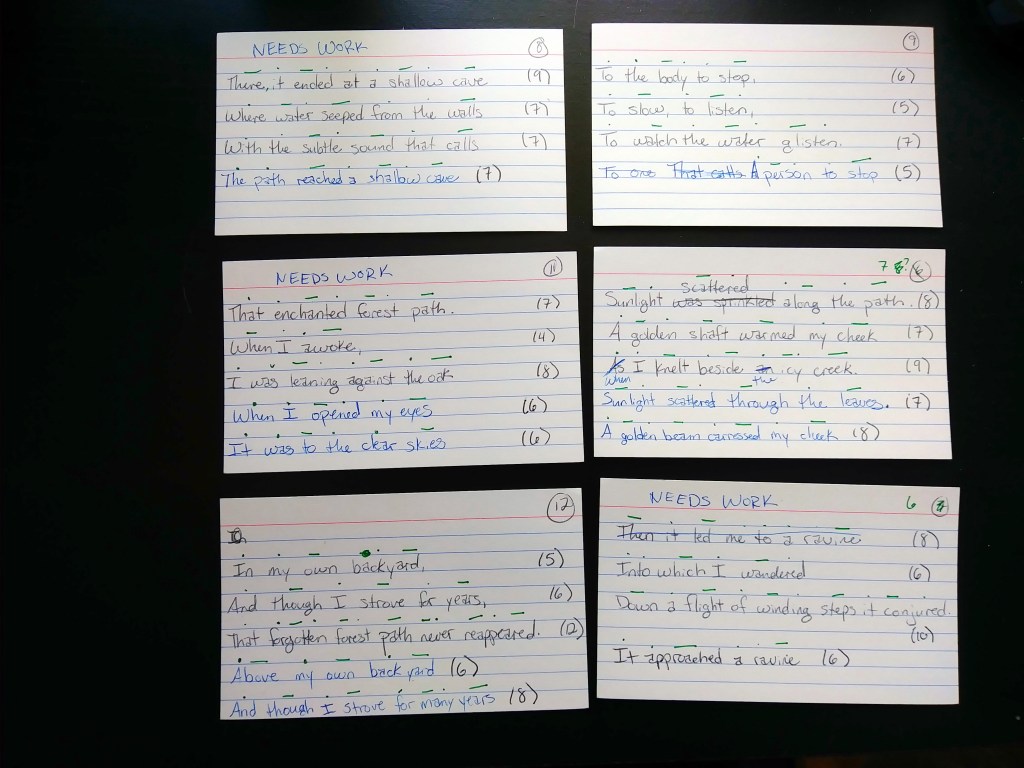 NEEDS WORK (8)
There, it ended at a shallow cave (9)
Where water seeped from the walls (7)
With the subtle sound that calls (7)
The path reached a shallow cave (7)
(9)
To the body to stop, (6)
To slow, to listen, (5)
To watch the water glisten. (7)
To one That calls A person to stop (5)
NEEDS WORK (11)
That enchanted forest path. (7)
When I awoke, (4)
I was leaning against the oak (8)
When I opened my eyes (6)
It was to the clear skies (6)
7
scattered
Sunlight was sprinkled along the path. (8)
A golden shaft warmed my cheek (7)
As I knelt beside icy creek. (9)
When the
Sunlight scattered through the leaves. (7)
A golden beam carressed my cheek (8)
(12)
In my own backyard, (5)
And though I strove for years, (6)
That forgotten forest path never reappeared. (12)
Above my own backyard (6)
And though I strove for many years (8)
NEEDS WORK 6
Then it led me to a ravine (8)
Into which I wandered (6)
Down a flight of winding steps it conjured.
(10)
It approached a ravine (6)